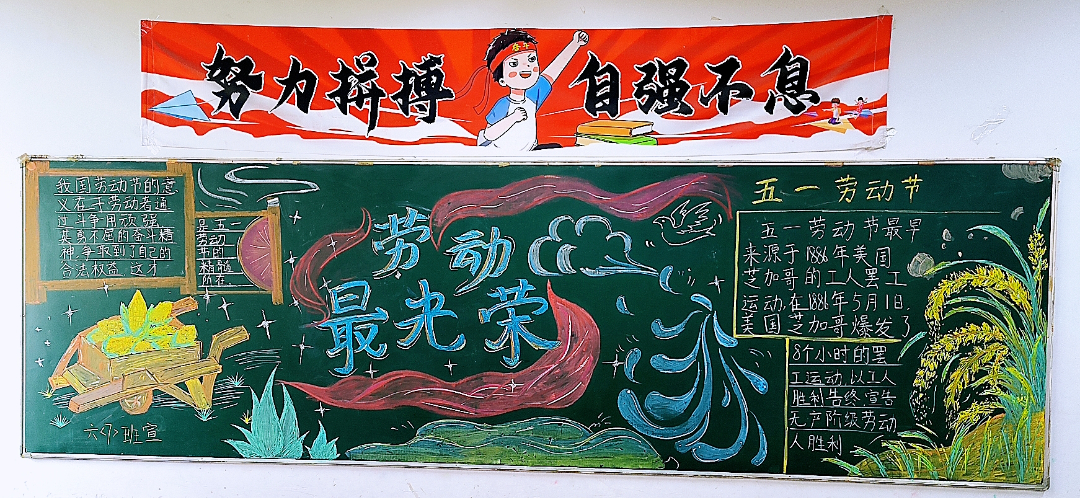 努力拼搏 自强不息
奋斗
我国劳动节的意
义在于劳动者通
过斗争用顽强
英勇不屈的奋斗精
神,争取到了自己的
合法权益,这才
是五一
劳动
节的
精髓
所在
劳动
最光荣
五一劳动节
五一劳动节最早
来源于1886年美国
芝加哥的工人罢工
运动,在1886年5月1日,
美国芝加哥爆发了
8个小时的罢
工运动,以工人
胜利告终,宣告
无产阶级劳动
人胜利
六〈7〉班宣